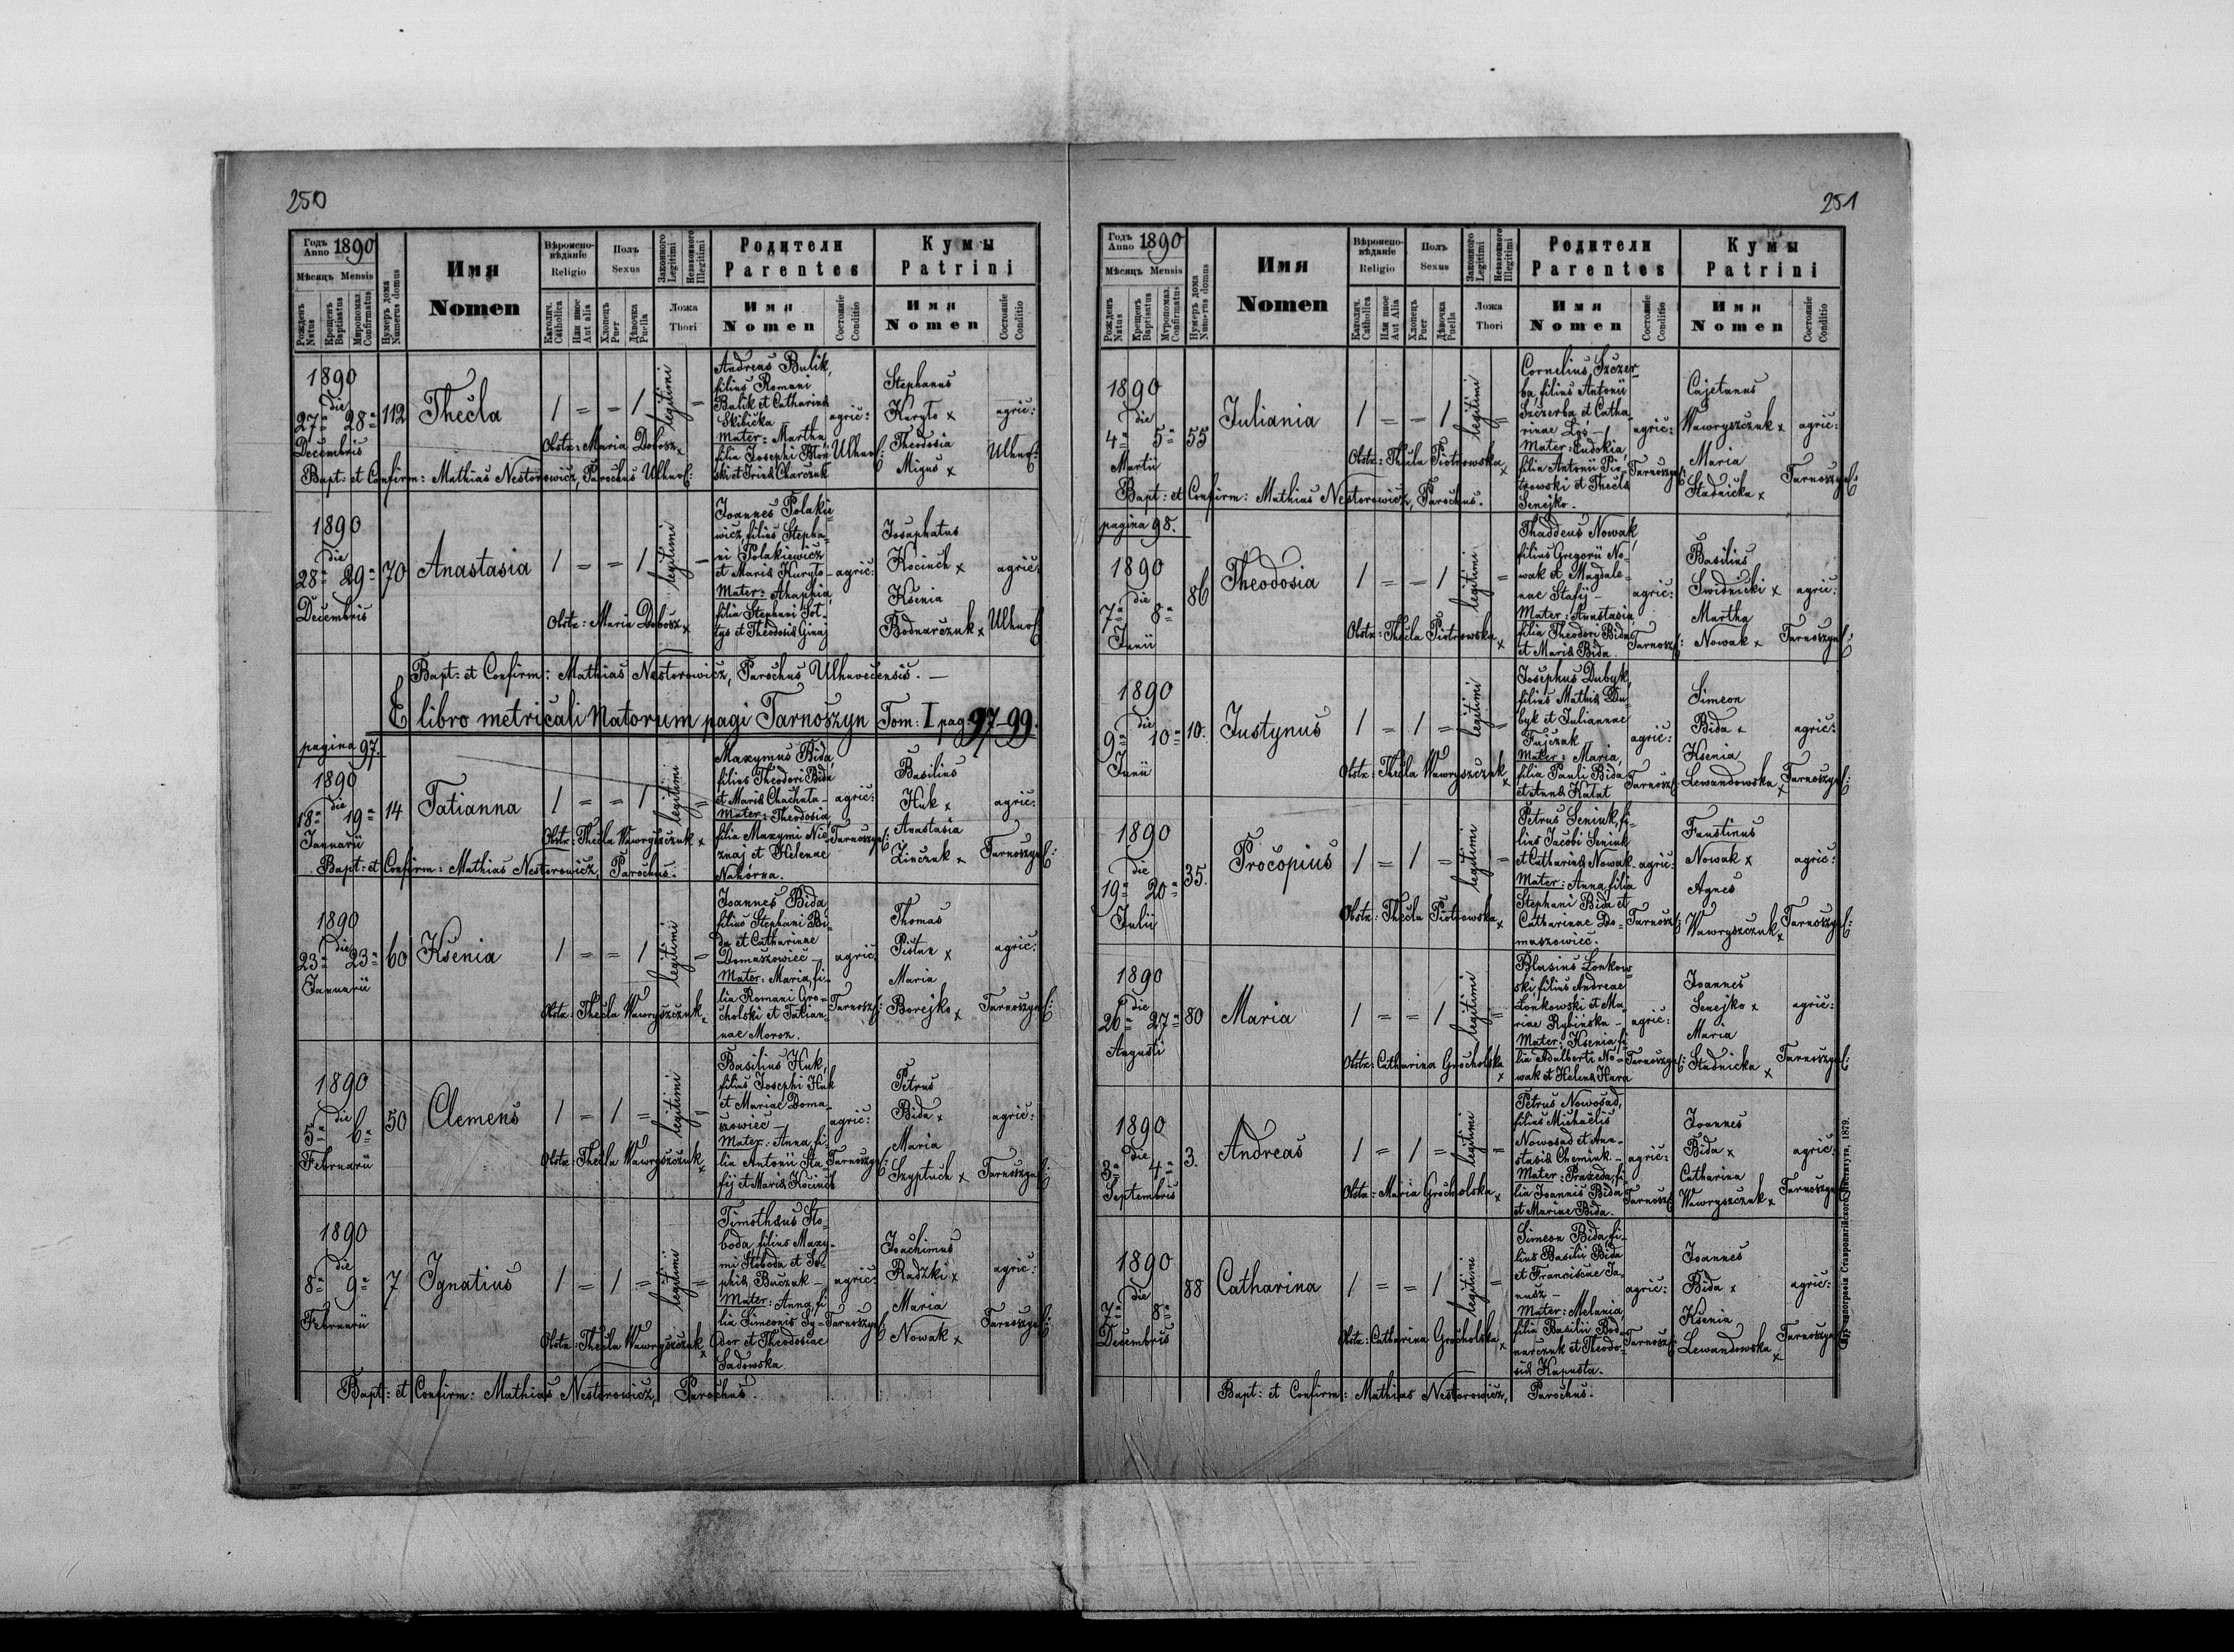 250
Годъ Anno 1890
Мѣсяцъ Mensis
Рожденъ Natus
Крещенъ Baptisatus
Миропомаз. Confirmatus
Нумеръ дома Numerus domus
Имя
Nomen
Вѣроиспо-
вѣданіе
Religio
Католич. Catholica
Или иное Aut Alia
Полъ
Sexus
Хлопецъ Puer
Дѣвочка Puella
Законного Legitimi
Незаконного Illegitimi
Ложа
Thori
Родители
Parentes
Имя
Nomen
Состояніе Conditio
Кумы
Patrini
Имя
Nomen
Состояніе Conditio
1890
die
27ª 28ª
Decembris
112
Thecla
1 = - 1
legitimi
Andreas Bulik,
filius Romani
Bulik et Catharina
Skibicka
Mater: Martha,
filia Josephi Mon
ski et Irinæ Charczuk
agric:
Ulhnof:
Stephanus
Kuryło x
Theodosia
Migus x
agric:
Ulhnof:
Obstx: Maria Dobosz x
Bapt: et Confirm: Mathias Nestorowicz, Parochus Ulhnof:
1890
die
28ª 29ª
Decembris
70
Anastasia
1 = - 1
legitimi
Joannes Polakie
wicz, filius Stepha-
ni Polakiewicz
et Mariæ Kuryło
Mater: Ahaphia,
filia Stephani Soł-
tys et Theodosiæ Ginaj
agric:
Josaphatus
Kociuch x
Ksenia
Bodnarczuk x
agric:
Ulhnof:
Obstx: Maria Dobosz x
Bapt: et Confirm: Mathias Nestorowicz, Parochus Ulhnovecensis. —
E libro metricali Natorum pagi Tarnoszyn Tom: I pag. 97-99.
pagina 97.
1890
die
18ª 19ª
Januarii
14
Tatianna
1 = - 1
legitimi
Maxymus Bida,
filius Theodori Bida
et Mariæ Chachuta -
Mater: Theodosia,
filia Maxymi Nie
znaj et Helenae
Nahórna.
agric:
Tarnoszynf:
Basilius
Huk x
Anastasia
Zinczuk x
agric:
Tarnoszynf:
Obstx: Thecla Wawryszczuk x
Bapt: et Confirm: Mathias Nestorowicz, Parochus.
1890
die
23ª 23ª
Januarii
60
Ksenia
1 = = 1
legitimi
Joannes Bida
filius Stephani Bi-
da et Catharinae
Domaszowiec -
Mater: Maria, fi-
lia Romani Gro-
cholski et Tatian-
nae Moroz.
agric:
Tarnoszf:
Thomas
Pistun x
Maria
Borejko x
agric:
Tarnoszynf:
Obstx: Thecla Wawryszczuk
1890
die
5ª 6ª
Februarii
50
Clemens
1 = 1 =
legitimi
Basilius Huk,
filius Josephi Huk
et Mariae Doma-
szowiec -
Mater: Anna, fi-
lia Antonii Sta-
fij et Mariæ Kociuch
agric:
Tarnoszynf:
Petrus
Bida x
Maria
Szyptuch x
agric:
Tarnoszynf:
Obstx: Thecla Wawryszczuk x
1890
die
8ª 9ª
Februarii
7
Ignatius
1 = 1 =
legitimi
Timothæus Sło-
boda, filius Maxy-
mi Słoboda et So-
phiæ Buczak -
Mater: Anna, fi
lia Simeonis Sy-
dor et Theodosiae
Sadowska.
agric:
Tarnoszynf:
Joachimus
Radzki x
Maria
Nowak x
agric:
Tarnoszynf:
Obstx: Thecla Wawryszczuk x
Bapt: et Confirm: Mathias Nestorowicz, Parochus.
251
Годъ Anno 1890
Мѣсяцъ Mensis
Рожденъ Natus
Крещенъ Baptisatus
Муропомаз. Confirmatus
Нумеръ дома Numerus domus
Имя
Nomen
Вѣроиспо-
вѣданіе
Religio
Католич. Catholica
Или иное Aut Alia
Полъ
Sexus
Хлопецъ Puer
Дѣвочка Puella
Законного Legitimi
Незаконного Illegitimi
Ложа
Thori
Родители
Parentes
Имя
Nomen
Состояніе Conditio
Кумы
Patrini
Имя
Nomen
Состояніе Conditio
1890
die
4ª 5ª
Martii
55
Juliania
1 = - 1
legitimi
Cornelius Szczer
ba, filius Antonii
Szczerba et Catha
rinae Łyś -
Mater: Eudokia,
filia Antonii Pio-
trowski et Thecla
Senejko.
agric:
Tarnoszynf:
Cajetanus
Wawryszczuk x
Maria
Stadnicka x
agric:
Tarnoszynf:
Obstx: Thecla Piotrowska x
Bapt: et Confirm: Mathias Nestorowicz, Parochus.
pagina 98.
1890
die
7ª 8ª
Junii
86
Theodosia
1 = - 1
legitimi
Thaddeus Nowak,
filius Gregorii No-
wak et Magdale-
nae Stafij -
Mater: Anastasia,
filia Theodori Bida
et Mariæ Bida.
agric:
Tarnoszf:
Basilius
Swidnicki x
Martha
Nowak x
agric:
Tarnoszynf:
Obstx: Thecla Piotrowska x
1890
die
9ª 10ª
Junii
10.
Justynus
1 = 1 =
legitimi
Josephus Dubyk,
filius Mathiæ Du-
byk et Juliannae
Fujczak
Mater: Maria,
filia Pauli Bida
et Annæ Kałat
agric:
Tarnoszf:
Simeon
Bida x
Ksenia
Lewandowska x
agric:
Tarnoszynf:
Obstx: Thecla Wawryszczuk x
1890
die
19ª 20ª
Julii
35.
Procopius
1 = 1 =
legitimi
Petrus Seniuk, fi-
lius Jacobi Seniuk
et Catharinæ Nowak
Mater: Anna, filia
Stephani Bida et
Catharinae Do-
maszowiec.
agric:
Tarnoszf:
Faustinus
Nowak x
Agnes
Wawryszczuk x
agric:
Tarnoszynf:
Obstx: Thecla Piotrowska x
1890
die
26ª 27ª
Augusti
80
Maria
1 = - 1
legitimi
Blasius Łonkow-
ski, filius Andreae
Łonkowski et Ma-
riae Rybińska -
Mater: Ksenia, fi
lia Adalberti No-
wak et Helenæ Hura
agric:
Tarnoszynf:
Joannes
Senejko x
Maria
Stadnicka x
agric:
Tarnoszynf:
Obstx: Catharina Grocholska x
1890
die
3ª 4ª
Septembris
3.
Andreas
1 = 1 =
legitimi
Petrus Nowosad,
filius Michaëlis
Nowosad et Ana-
stasiæ Chemiuk -
Mater: Praxeda, fi-
lia Joannis Bida
et Mariae Bida.
agric:
Tarnoszf:
Joannes
Bida x
Catharina
Wawryszczuk x
agric:
Tarnoszynf:
Obstx: Maria Grocholska x
1890
die
7ª 8ª
Decembris
88
Catharina
1 = = 1
legitimi
Simeon Bida, fi-
lius Basilii Bida
et Franciscae Ja-
nusz -
Mater: Melania
filia Basilii Bod
narczuk et Theodo-
siæ Kapusta.
agric:
Tarnoszf:
Joannes
Bida x
Ksenia
Lewandowska x
agric:
Tarnoszynf:
Obstx: Catharina Grocholska x
Bapt: et Confirm: Mathias Nestorowicz, Parochus.
Изъ типографіи Ставропигійского Института, 1879.